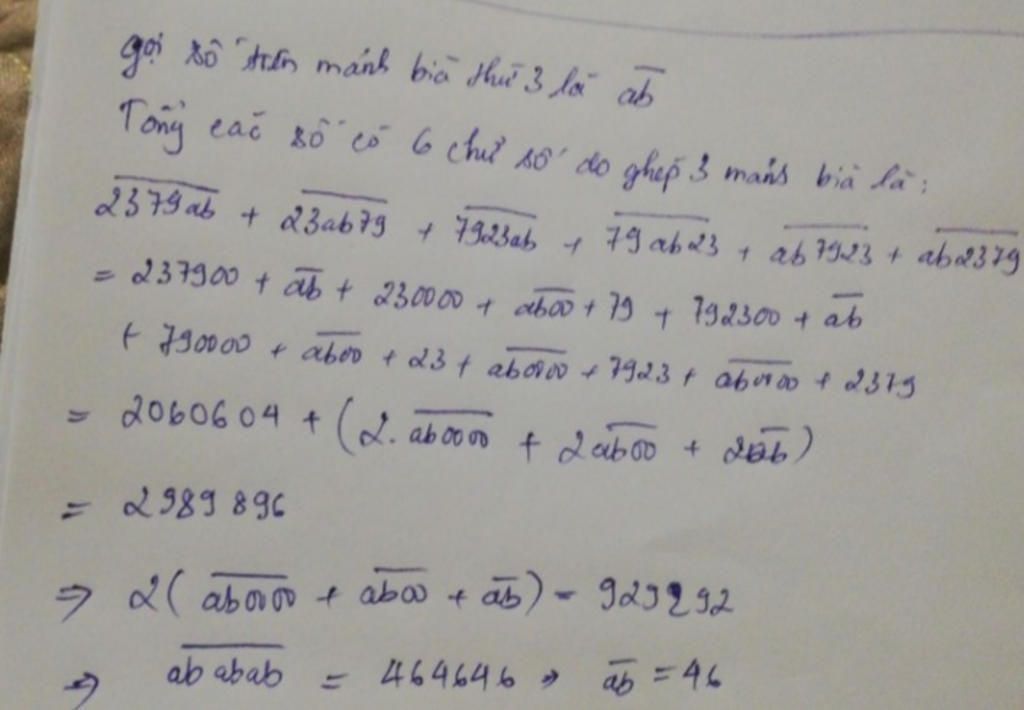 gọi số trên mảnh bìa thứ 3 là ab̅
Tổng các số có 6 chữ số do ghép 3 mảnh bìa là:
2379ab + 23ab79 + 7923ab + 79ab23 + ab7923 + ab2379
= 237900 + ab + 230000 + ab00 + 79 + 792300 + ab
+ 790000 + ab00 + 23 + ab0000 + 7923 + ab0000 + 2379
= 2060604 + (2. ab0000 + 2ab00 + 2ab)
= 2989896
⇒ 2(ab0000 + ab00 + ab) = 929292
⇒ ababab = 464646 ⇒ ab = 46